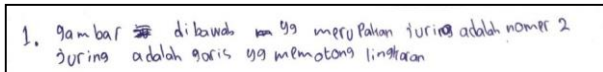 1. gambar dibawah yg merupakan juring adalah nomer 2
juring adalah garis yg memotong lingkaran